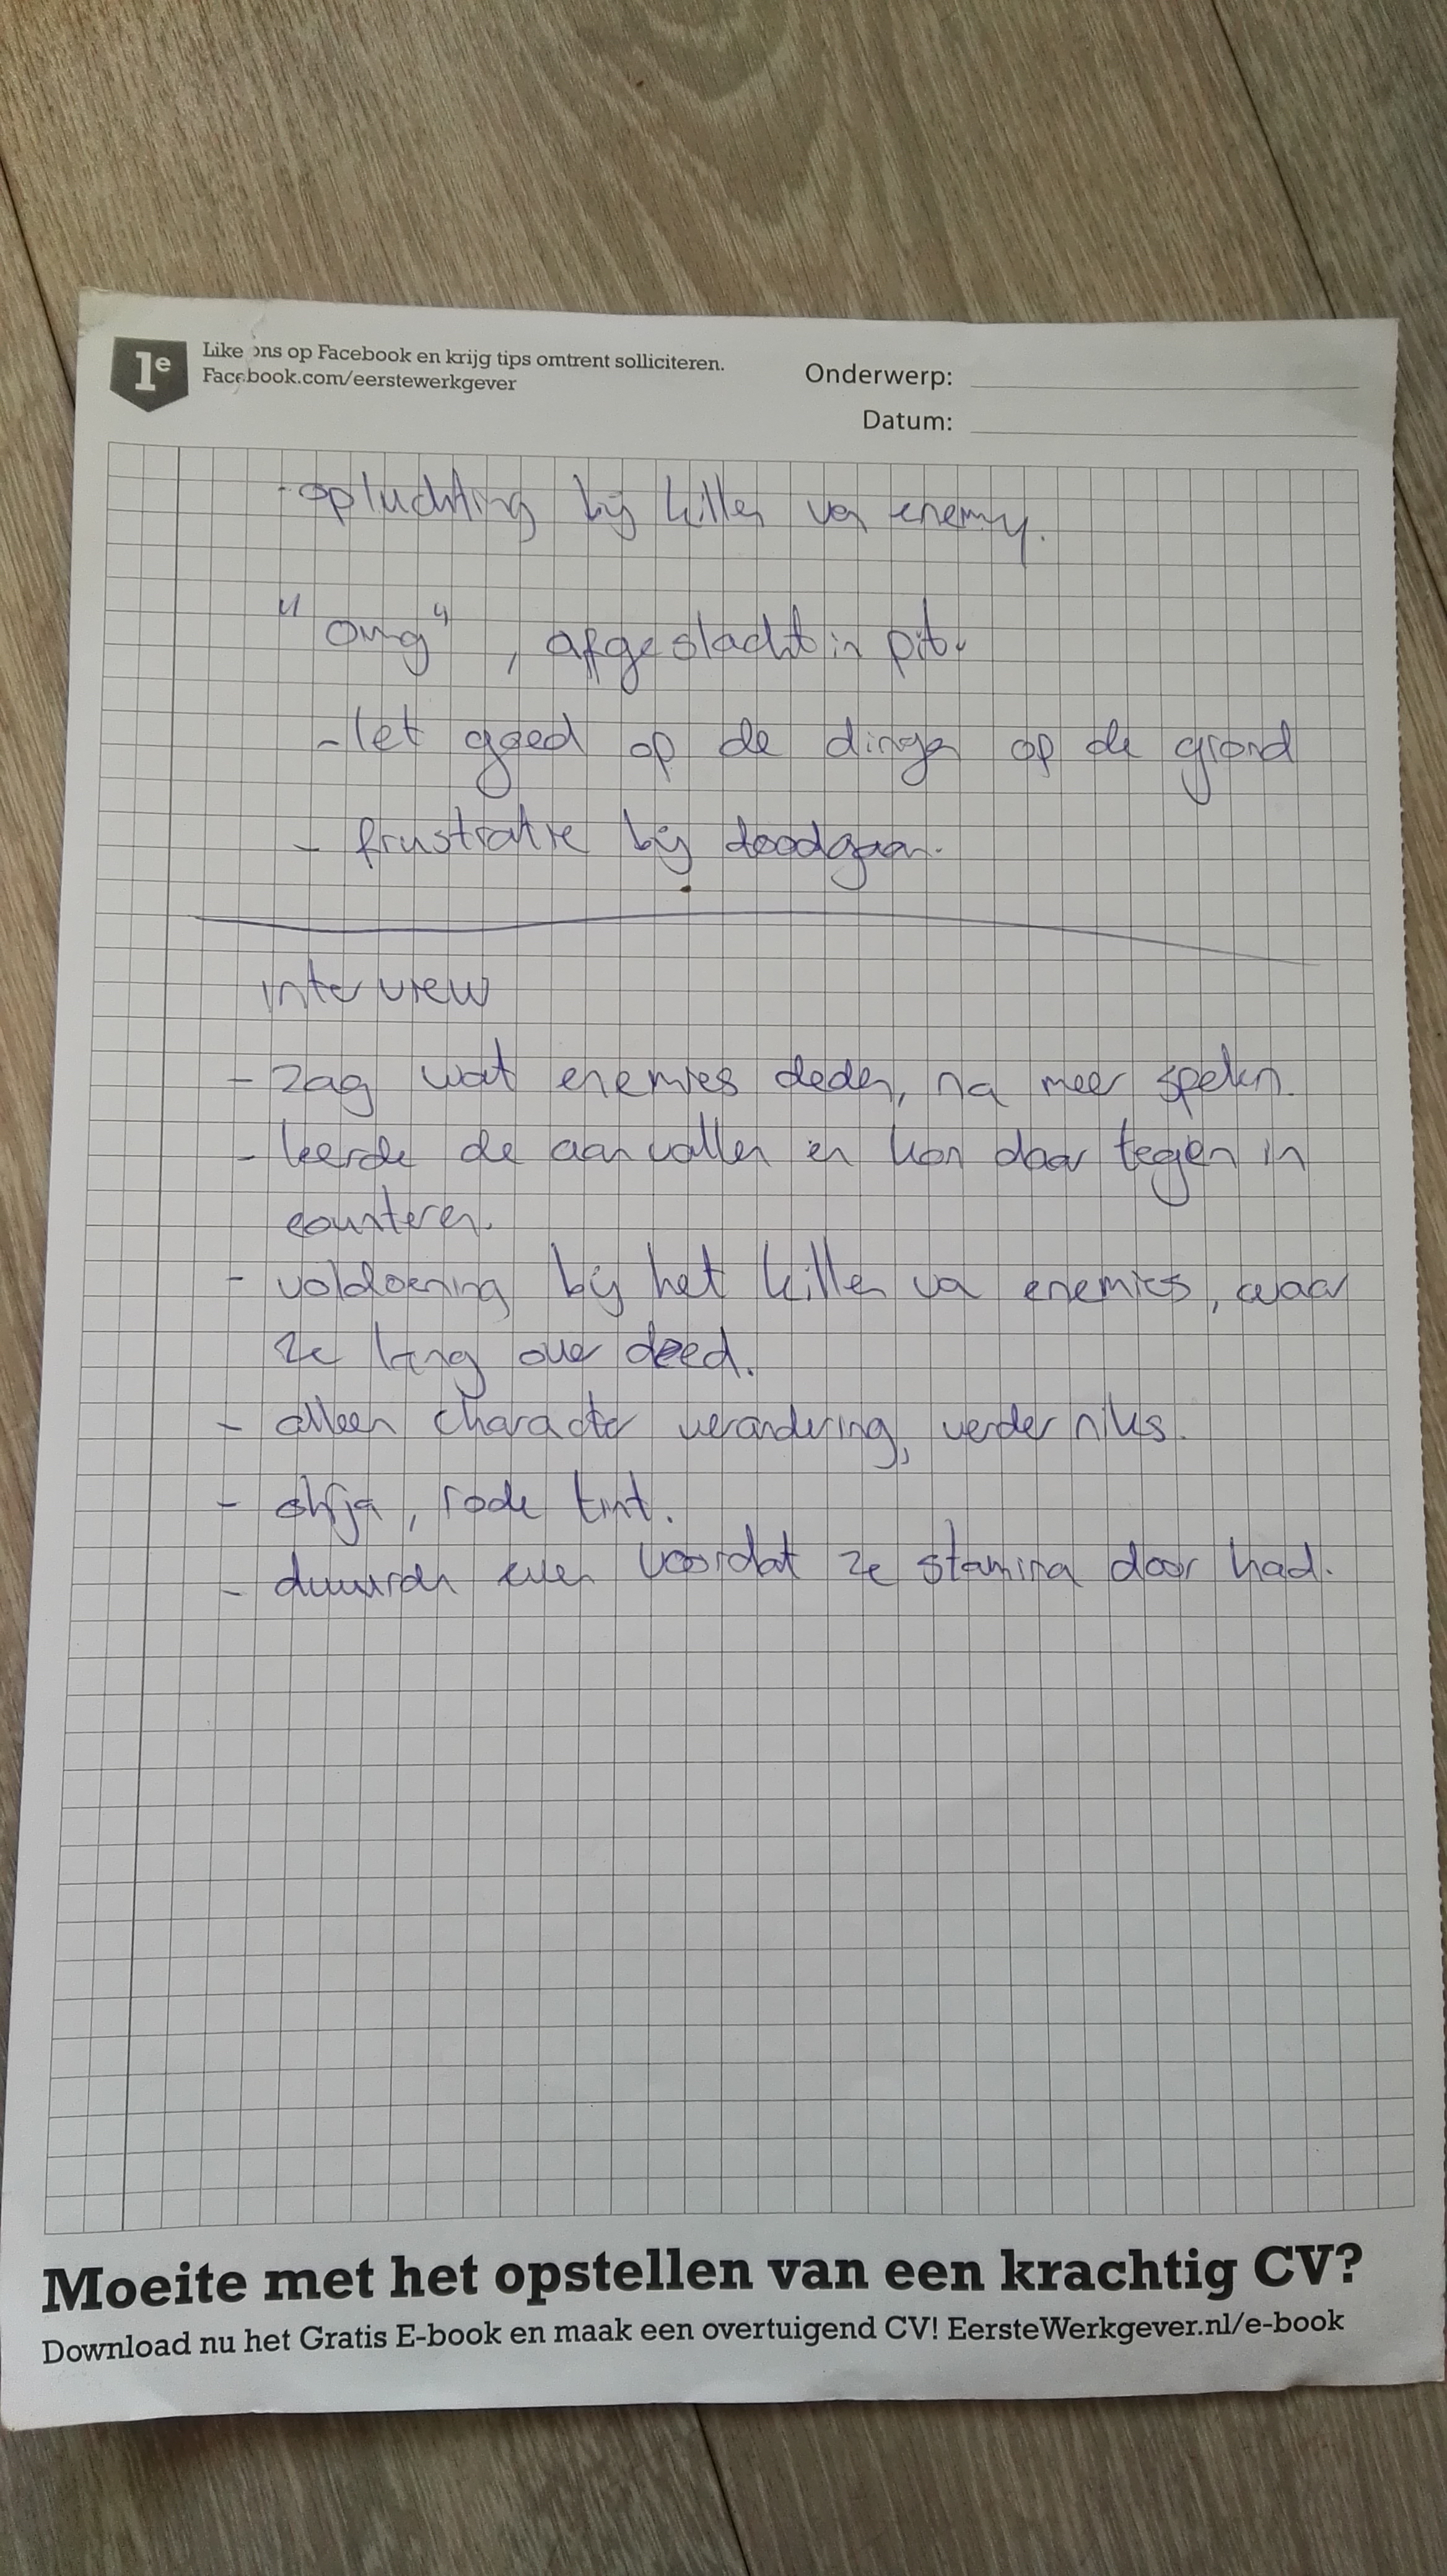 1e
Like ons op Facebook en krijg tips omtrent solliciteren.
Facebook.com/eerstewerkgever
Onderwerp:
Datum:
- opluchting bij killen van enemy.
"omg", afgeslacht in pit.
- let goed op de dingen op de grond
- frustratie bij doodgaan.
interview
- zag wat enemies deden, na meer spelen.
- leerde de aanvallen en kon daar tegen in
counteren.
- voldoening bij het killen van enemies, waar
ze lang over deed.
- alleen character verandering, verder niks.
- , rode tint.
- duurde even voordat ze stamina door had.
Moeite met het opstellen van een krachtig CV?
Download nu het Gratis E-book en maak een overtuigend CV! EersteWerkgever.nl/e-book